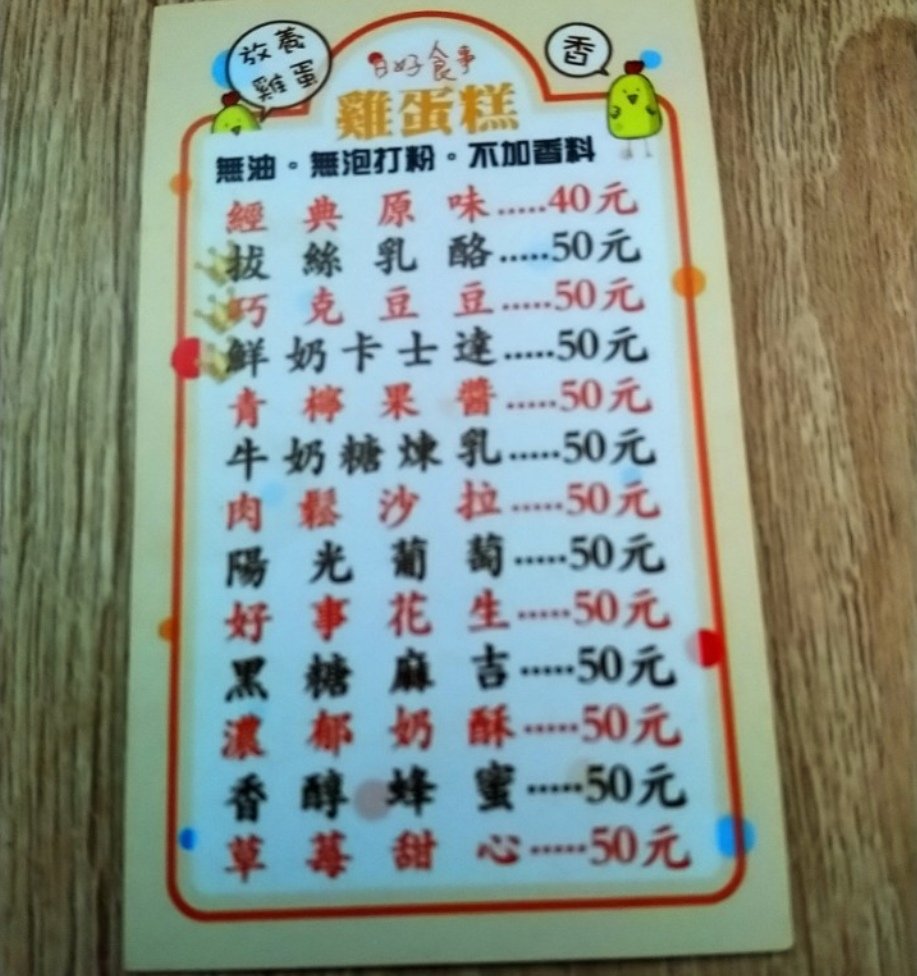 放養
雞蛋
香
日好食事
雞蛋糕
無油。無泡打粉。不加香料
經典原味.....40元
拔絲乳酪.....50元
巧克豆豆.....50元
鮮奶卡士達.....50元
青檸果醬.....50元
牛奶糖煉乳.....50元
肉鬆沙拉.....50元
陽光葡萄.....50元
好事花生.....50元
黑糖麻吉.....50元
濃郁奶酥.....50元
香醇蜂蜜.....50元
草莓甜心.....50元